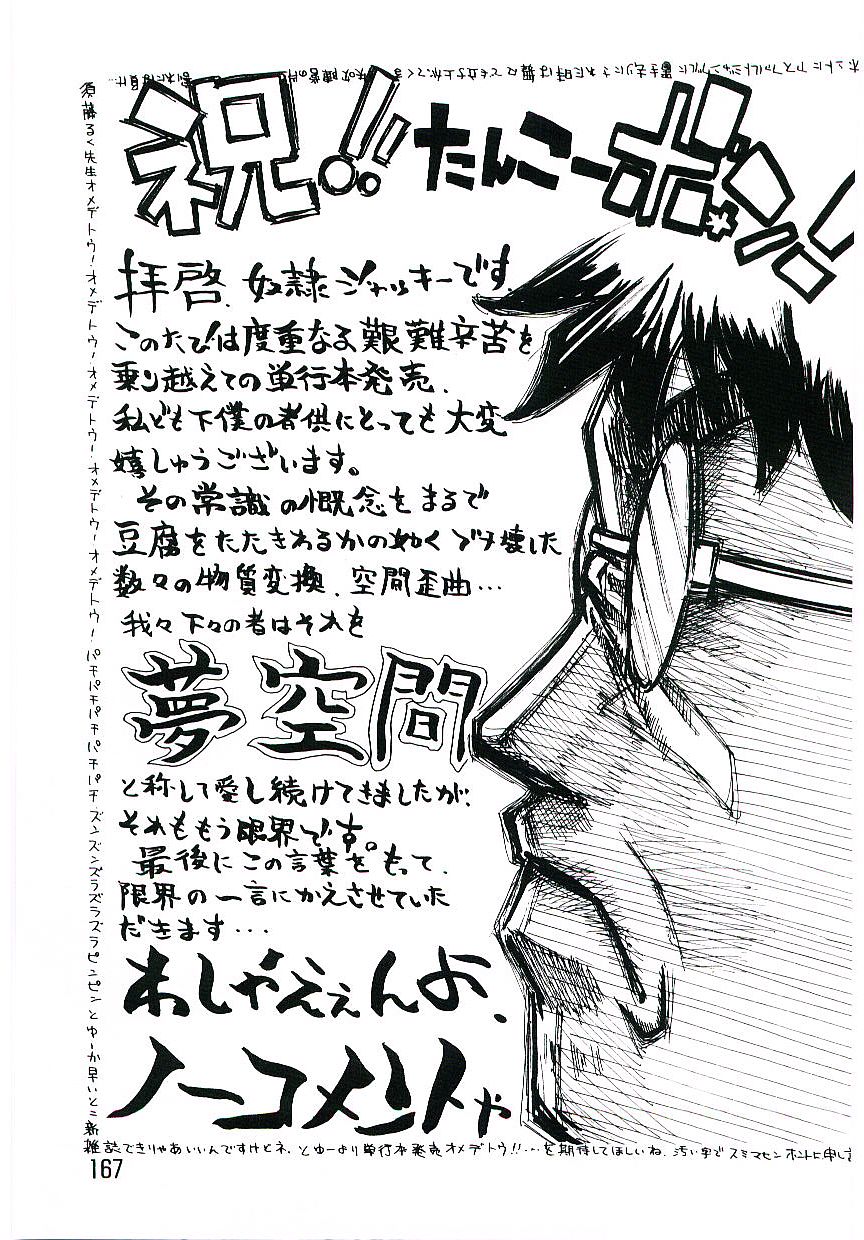 祝!! たんこーボッ!!
拝啓、奴隷ジャッキーです。
このたびは度重なる艱難辛苦を
乗り越えての単行本発売、
私ども下僕の者供にとっても大変
嬉しゅうございます。
その常識の慨念をまるで
豆腐をたたきわるかの如くブチ壊した
数々の物質変換、空間歪曲…
我々下々の者はそれを
夢空間
と称して愛し続けてきましたが、
それももう限界です。
最後にこの言葉をもって、
限界の一言にかえさせていた
だきます…
わしゃええんよ、
ノーコメントや
須藤るく先生オメデトウ!オメデトウ!オメデトウ!オメデトウ!オメデトウ!パチパチパチパチパチパチ ズンズンズラズラズラピンピンとゆーか早いとこ新
雑誌できりゃあいいんですけどネ、とゆーより単行本発売オメデトウ!!…を期待してほしいね、汚い字でスミマセンホントに申し
167